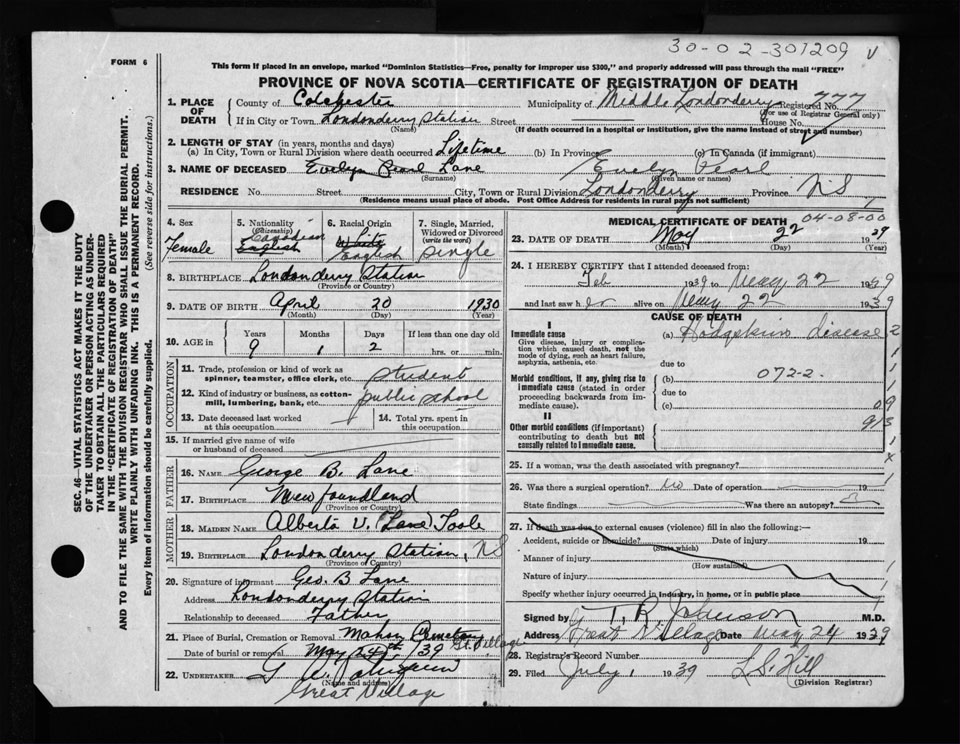 30-02-301209 v
FORM 6
This form if placed in an envelope, marked "Dominion Statistics—Free, penalty for improper use $300," and properly addressed will pass through the mail "FREE"
PROVINCE OF NOVA SCOTIA—CERTIFICATE OF REGISTRATION OF DEATH
SEC. 46—VITAL STATISTICS ACT MAKES IT THE DUTY
OF THE UNDERTAKER OR PERSON ACTING AS UNDER-
TAKER TO OBTAIN ALL THE PARTICULARS REQUIRED
IN THE "CERTIFICATE OF REGISTRATION OF DEATH"
AND TO FILE THE SAME WITH THE DIVISION REGISTRAR WHO SHALL ISSUE THE BURIAL PERMIT.
WRITE PLAINLY WITH UNFADING INK. THIS IS A PERMANENT RECORD.
Every item of information should be carefully supplied. (See reverse side for instructions.)
1. PLACE OF DEATH
County of Colchester Municipality of Middle Londonderry Registered No. 777
(For use of Registrar General only)
If in City or Town Londonderry Station Street House No.
(Name) (If death occurred in a hospital or institution, give the name instead of street and number)
2. LENGTH OF STAY (in years, months and days)
(a) In City, Town or Rural Division where death occurred Lifetime (b) In Province (c) In Canada (if immigrant)
3. NAME OF DECEASED Evelyn Pearl Lane Evelyn Pearl
(Surname) (Given name or names)
RESIDENCE No. Street City, Town or Rural Division Londonderry Province NS
(Residence means usual place of abode. Post Office Address for residents in rural parts not sufficient)
4. Sex Female
5. Nationality (Citizenship) Canadian English
6. Racial Origin White English
7. Single, Married, Widowed or Divorced (write the word) Single
8. BIRTHPLACE Londonderry Station
(Province or Country)
9. DATE OF BIRTH April 20 1930
(Month) (Day) (Year)
10. AGE in Years Months Days If less than one day old
9 1 2 hrs. or min.
OCCUPATION
11. Trade, profession or kind of work as spinner, teamster, office clerk, etc. Student
12. Kind of industry or business, as cotton-mill, lumbering, bank, etc. public school
13. Date deceased last worked at this occupation
14. Total yrs. spent in this occupation
15. If married give name of wife or husband of deceased
FATHER
16. NAME George B. Lane
17. BIRTHPLACE Newfoundland
(Province or Country)
MOTHER
18. MAIDEN NAME Alberta V. (Lane) Toole
19. BIRTHPLACE Londonderry Station, NS
(Province or Country)
20. Signature of informant Geo. B Lane
Address Londonderry Station
Relationship to deceased Father
21. Place of Burial, Cremation or Removal Mahon Cemetery Gt. Village
Date of burial or removal May 24th /39
22. UNDERTAKER
(Name and address)
Great Village
MEDICAL CERTIFICATE OF DEATH 04-08-00
23. DATE OF DEATH May 22 1939
(Month) (Day) (Year)
24. I HEREBY CERTIFY that I attended deceased from:
Feb 1939 to May 22 1939
and last saw her alive on May 22 1939
CAUSE OF DEATH
I
Immediate cause
Give disease, injury or complication which caused death, not the mode of dying, such as heart failure, asphyxia, asthenia, etc.
(a) Hodgekins disease
due to
Morbid conditions, if any, giving rise to immediate cause (stated in order proceeding backwards from immediate cause).
(b) 072-2.
due to
(c) 09
II
Other morbid conditions (if important) contributing to death but not causally related to immediate cause.
25. If a woman, was the death associated with pregnancy?
26. Was there a surgical operation? no Date of operation 19
State findings Was there an autopsy?
27. If death was due to external causes (violence) fill in also the following:—
Accident, suicide or homicide? Date of injury 19
(State which)
Manner of injury
(How sustained)
Nature of injury
Specify whether injury occurred in industry, in home, or in public place
Signed by T. R. Johnson M.D.
Address Great Village Date May 24 1939
28. Registrar's Record Number
29. Filed July 1 1939 L.S. Hill
(Division Registrar)